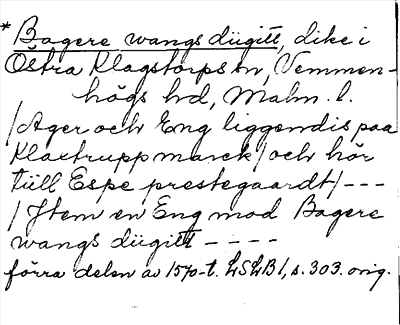 * Bagere wangs dügitt, dike i
Östra Klagstorps sn, Vemmen-
högs hd, Malm. l.
/Ager och Eng liggendis paa
Klaxtrupp marck/och hör
tüll Espe prestegaardt/---
/Item en Eng mod Bagere
wangs dügitt ----
förra delen av 1570-t. LSLB1, s. 303. orig.